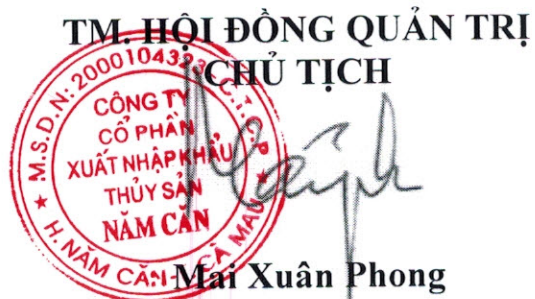 TM. HỘI ĐỒNG QUẢN TRỊ
CHỦ TỊCH
M.S.D.N: 2000104323 C.T.C.P
CÔNG TY
CỔ PHẦN
XUẤT NHẬP KHẨU
THỦY SẢN
NĂM CĂN
H. NĂM CĂN - CÀ MAU
Mai Xuân Phong